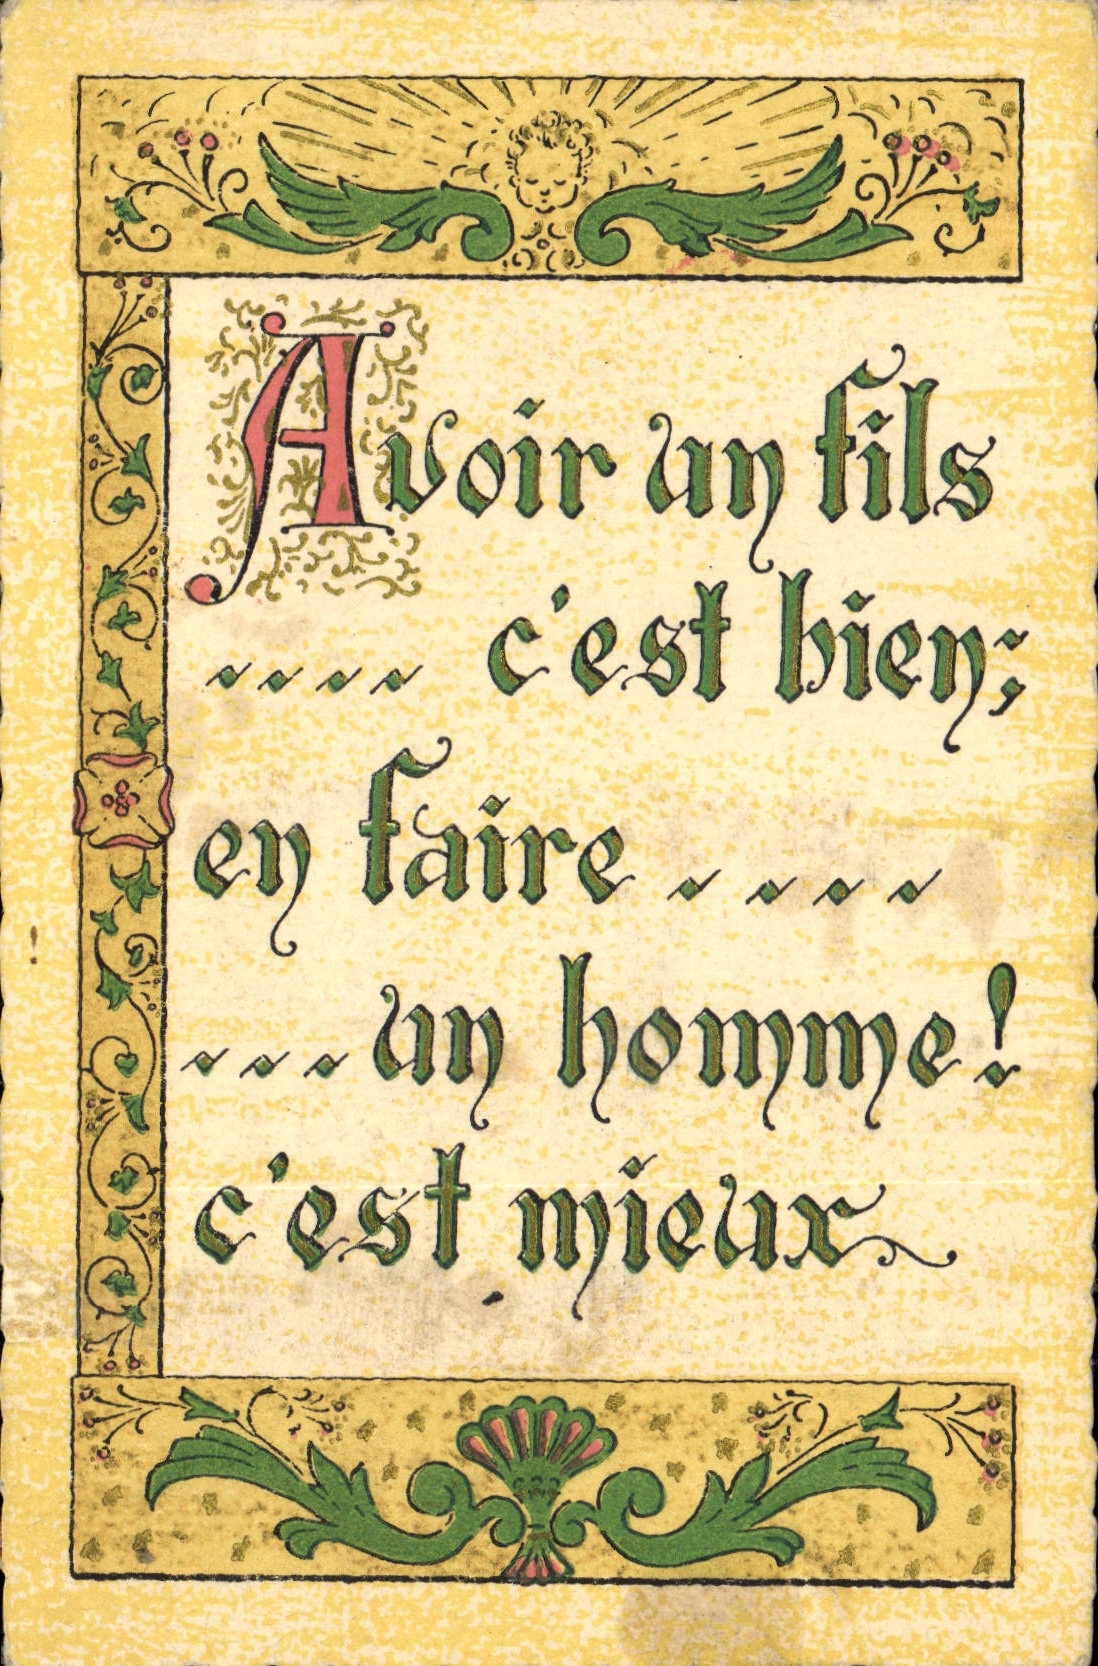 Avoir un fils
.... c'est bien;
en faire ....
... un homme!
c'est mieux